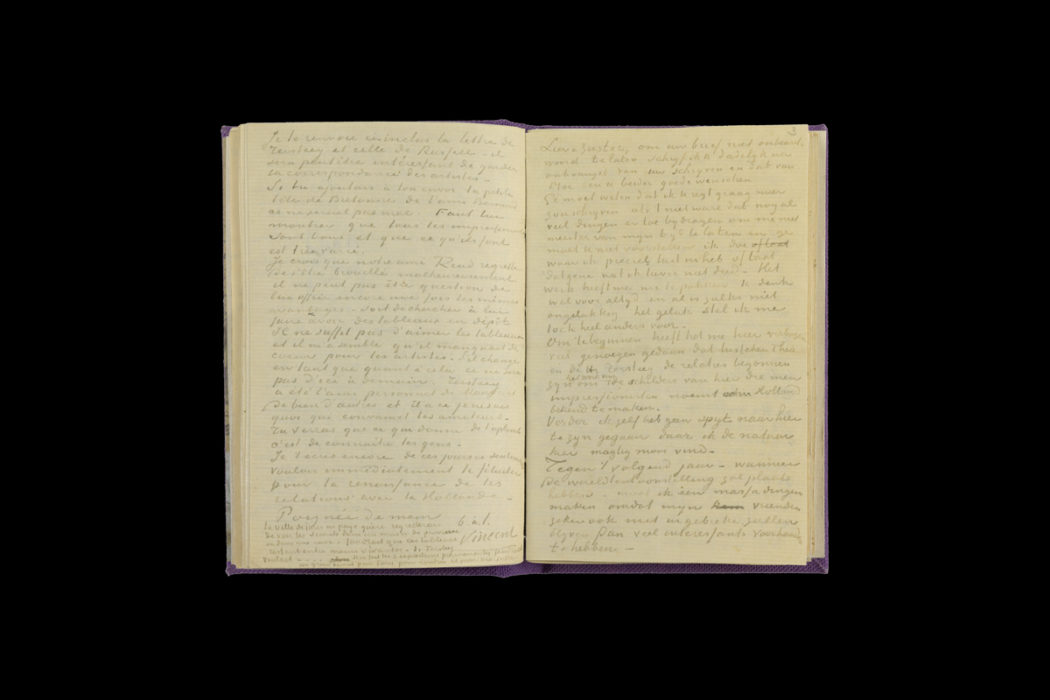 Je te renvoie ci inclus la lettre de
Tersteeg et celle de Russell - il
sera peut être intéressant de garder
la correspondance des artistes -
Si tu ajoutais à ton envoi la petite
tête de Bretonne de l'ami Bernard
ce ne serait pas mal. Faut lui
montrer que tous les impressionn
sont bons et que ce qu'ils font
est très varié.
Je crois que notre ami Reid regrette
de s'être brouillé malheureusement
il ne peut pas être question de
lui offrir encore une fois les mêmes
avantages - soit de chercher à lui
faire avoir des tableaux en dépôt
Il ne suffit pas d'aimer les tableaux
et il m'a semblé qu'il manquait de
coeur pour les artistes. S'il change
en tant que quant à cela ce ne sera
pas d'ici à demain. Tersteeg
a été l'ami personnel de Mauve et
de bien d'autres et il a ce je ne sais
quoi qui convainct les amateurs -
Tu verras que ce qui donne de l'aplomb
c'est de connaître les gens -
Je t'écris encore de ces jours ci seulem
voulais immédiatement te féliciter
pour la renaissance de tes
relations avec la Hollande -
Poignée de main
t. à t.
Vincent
3
Lieve Zuster, om uw brief niet onbeant-
woord te laten schrijf ik U dadelijk na
ontvangst van uw schrijven en dat van
Moe om U beider goede wenschen
Ge moet weten dat ik U regt graag meer
zou schrijven als 't niet ware dat nog al
veel dingen er toe bydragen om me niet
meester van mijn tijd te laten en ge
moet U niet voorstellen ik doe of laat
waar ik precies lust in heb of laat
datgene wat ik liever niet deed. Het
werk heeft me nu te pakken ik denk
wel voor altijd en al is zulks niet
ongelukkig het geluk stel ik me
toch heel anders voor.
Om te beginnen heeft het me hier verbazen
veel genoegen gedaan dat tusschen Theo
en de Hr Tersteeg de relaties begonnen
zyn om de schilders van hier die men
impressionisten noemt in Holland
bekend te maken.
Verder ik zelf heb geen spyt naar hier
te zyn gegaan daar ik de natuur
hier magtig mooi vind. -
Tegen 't volgend jaar - wanneer
de wereldtentoonstelling zal plaats
hebben - moet ik een massa dingen
maken omdat mijn vrienden
zeker ook niet in gebreke zullen
blijven van veel interessants voorhand
te hebben -